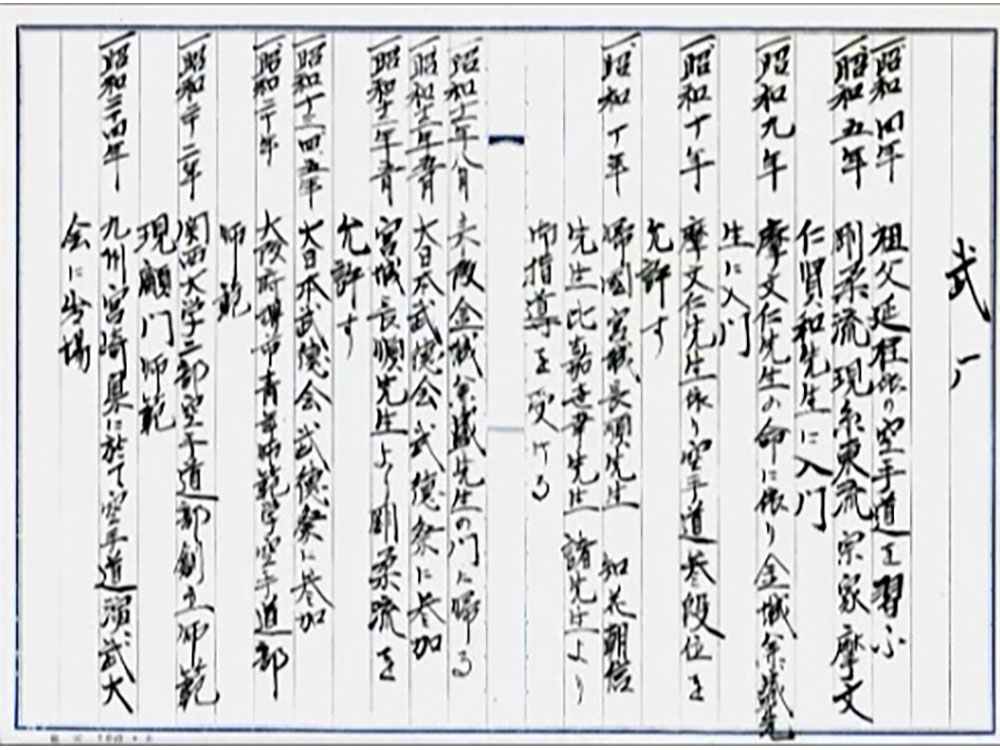 武
一昭和四年 祖父延程依り空手道を習ふ
一昭和五年 剛柔流現糸東流宗家摩文
仁賢和先生に入門
一昭和九年 摩文仁先生の命に依り金城兼盛先
生に入門
一昭和十年 摩文仁先生依り空手道参段位を
允許す
一昭和 年 帰国宮城長順先生 知花朝信
先生比嘉世幸先生 諸先生より
御指導を受ける
一昭和十一年八月 来阪金城兼盛先生の門に帰る
一昭和十二年 大日本武徳会武徳祭に参加
一昭和十二年 宮城長順先生より剛柔流を
允許す
一昭和十三四五年 大日本武徳会武徳祭に参加
一昭和二十年 大阪府 青年師範学空手道部
師範
一昭和三十二年 関西大学二部空手道部創立師範
現顧門師範
一昭和三十四年 九州宮崎県に於て空手道演武大
会に出場